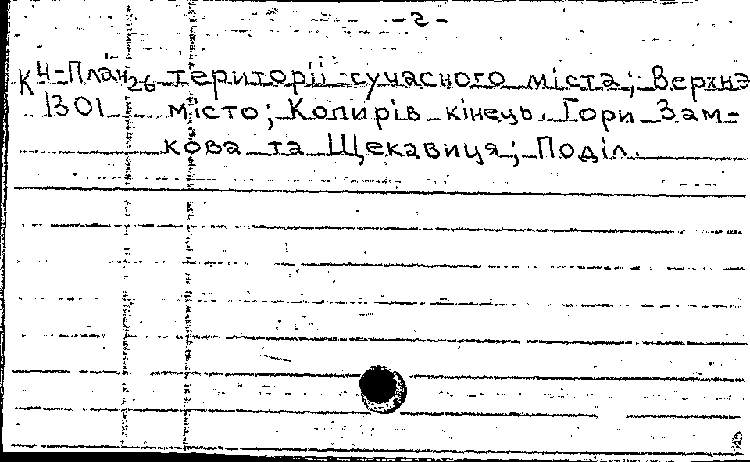 -2-
К Ч-План 26 території сучасного міста; Верхнэ
1301 місто; Копирів кінець. Гори Зам-
кова та Щекавиця; Поділ.